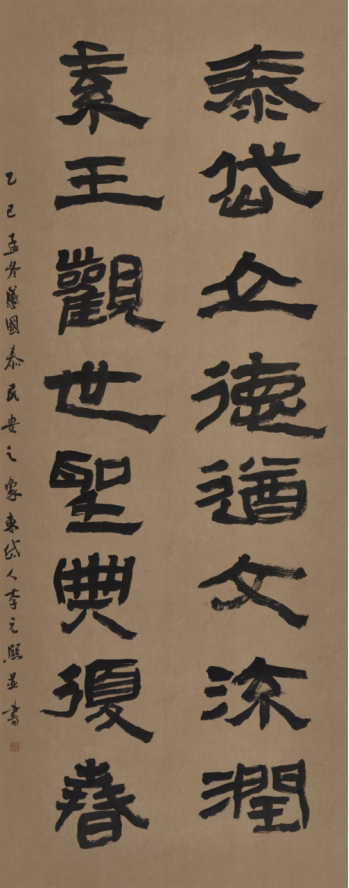 泰岱立德遒文流潤
素王觀世聖典復春
乙巳孟冬蘊國泰民安之象東岱人李元熙並書